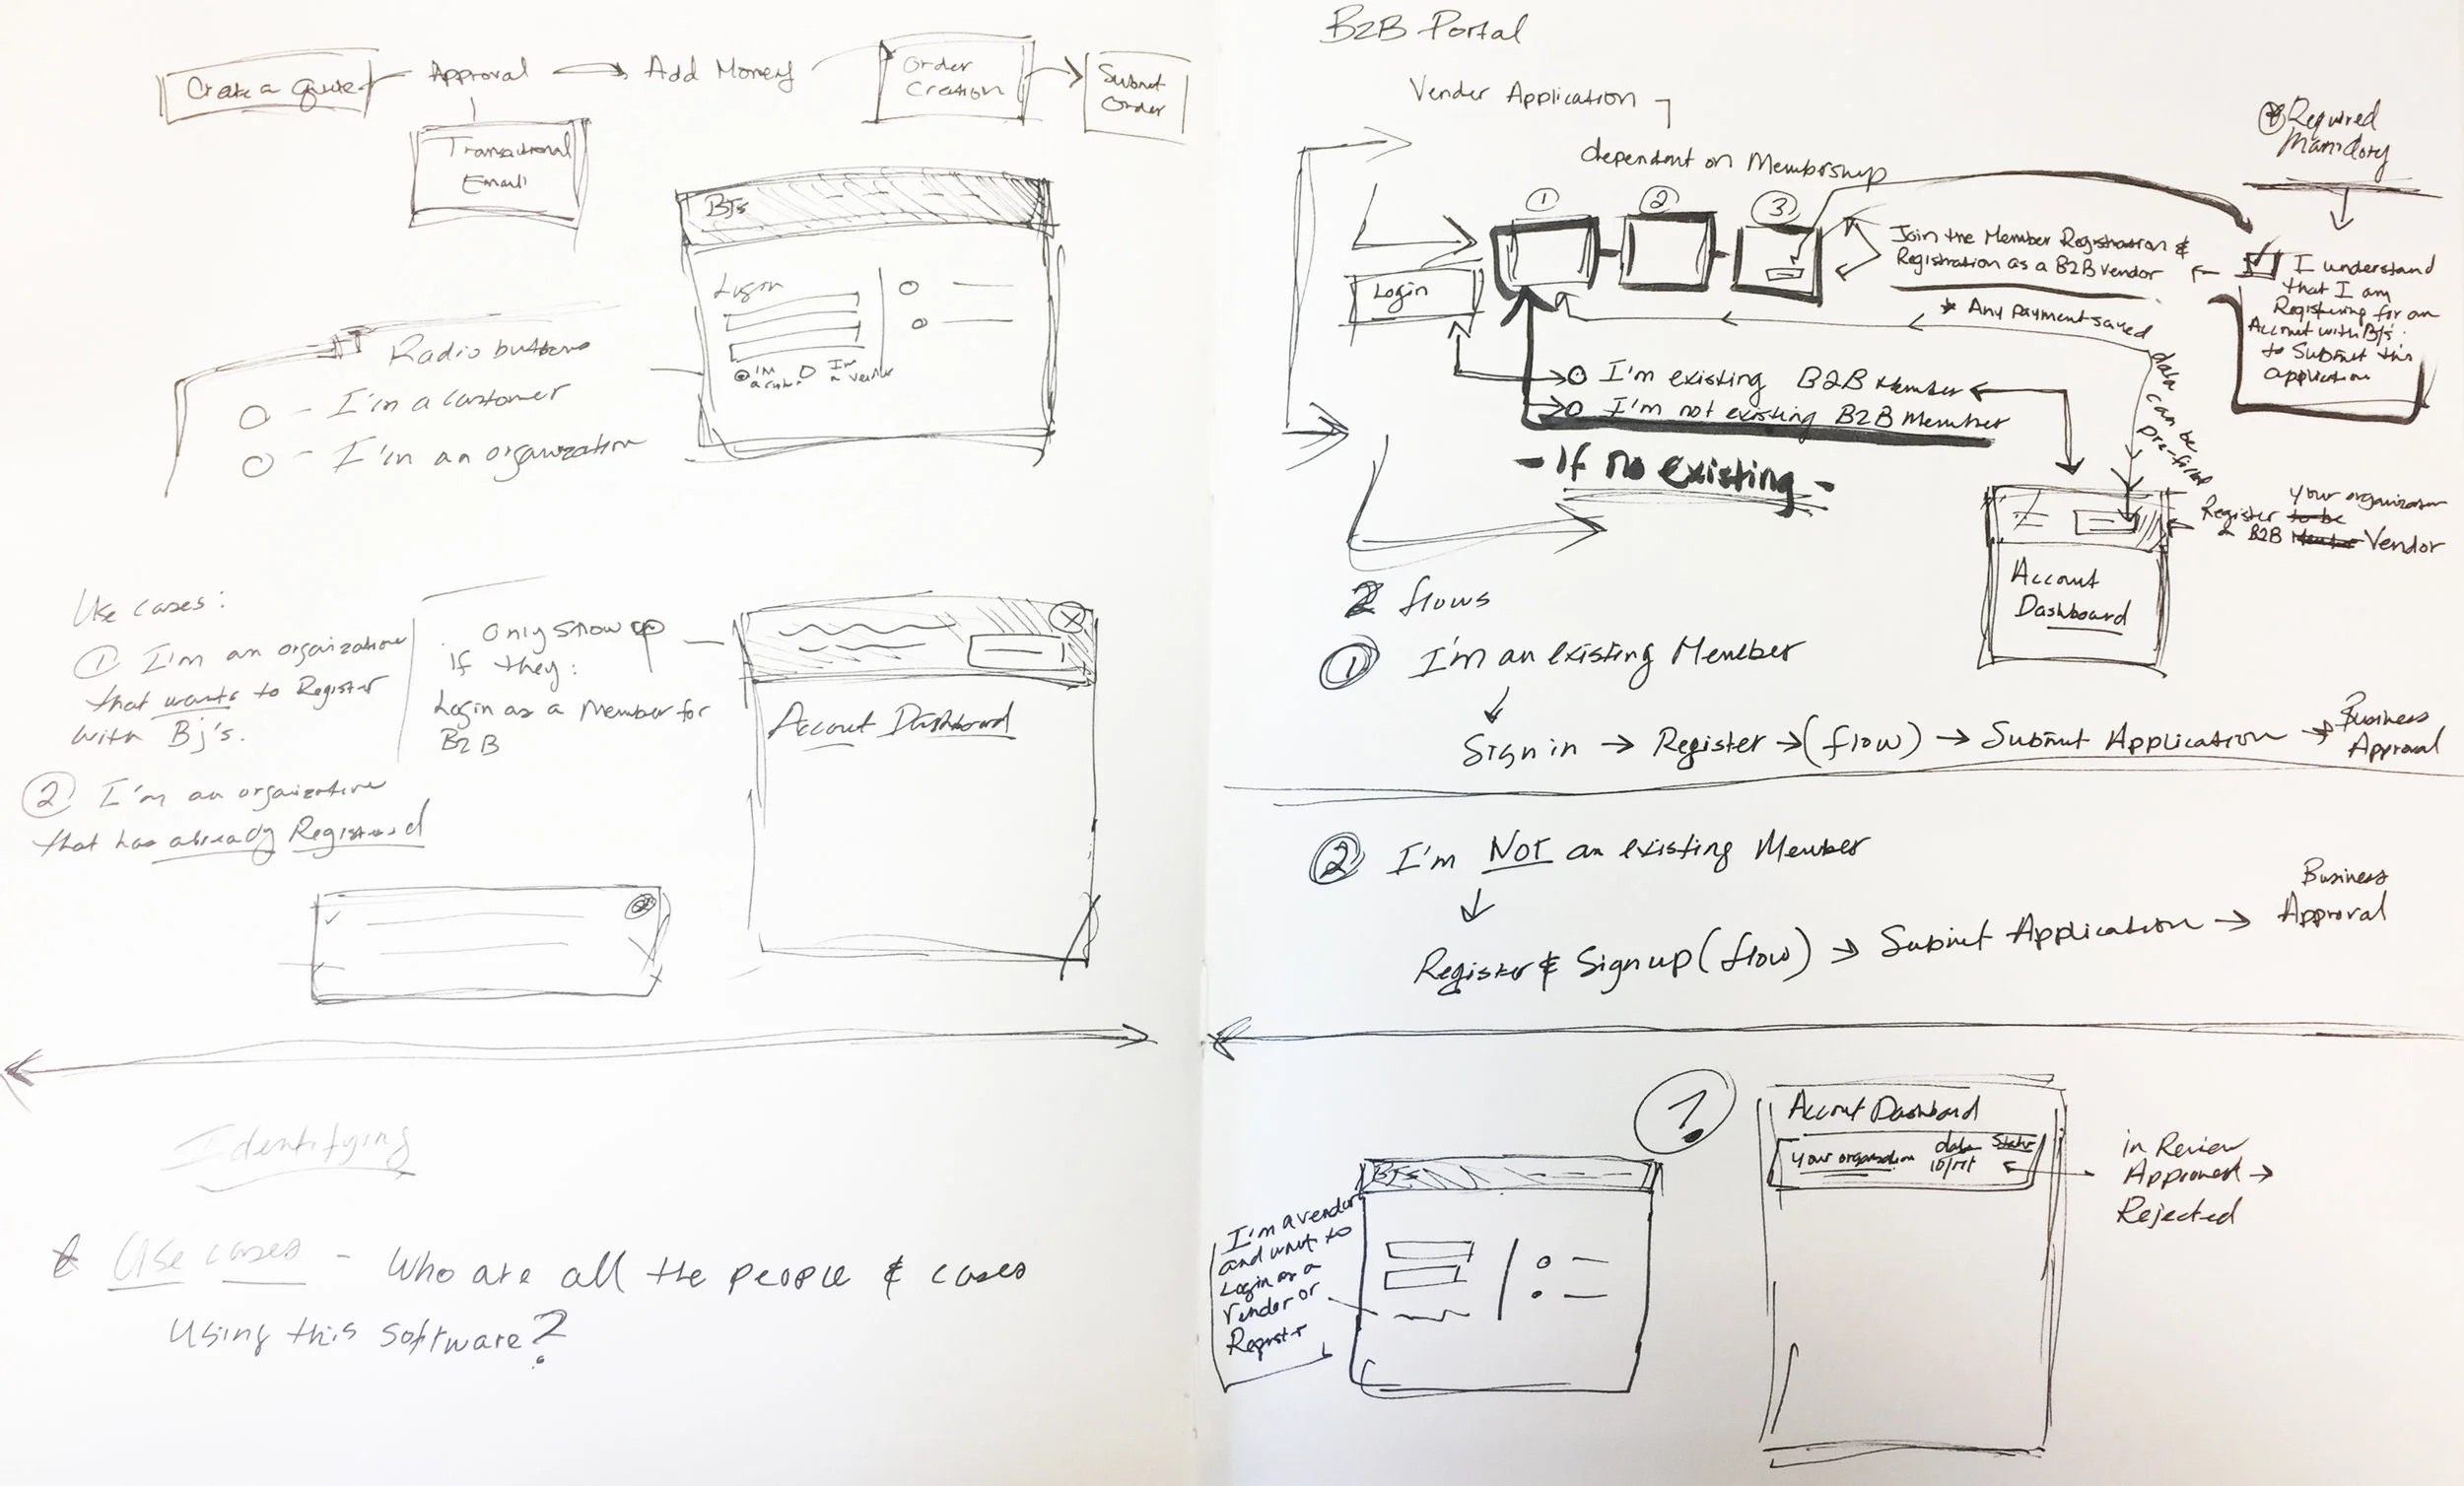 Create a Quote
Approval
Add Money
Order
Creation
Submit
Order
Transactional
Email
BJs
Login
I'm
a
I'm
a vendor
Radio buttons
I'm a customer
I'm an organization
Use cases:
① I'm an organization
that wants to Register
with Bj's.
② I'm an organization
that has already Registered
Only show up
If they:
Login as a Member for
B2B
Account Dashboard
Identifying
Use cases - Who are all the people & cases
Using this software?
B2B Portal
Vender Application
dependent on Membership
① ② ③
Login
Join the Member Registration &
Registration as a B2B Vendor
* Any payment saved
data can be
pre-filled
* Required
Manidory
I understand
that I am
Registering for an
Account with BJ's
to Submit this
application
I'm existing B2B Member
I'm not existing B2B Member
- If no existing -
your organization
Register to be
a B2B Member Vendor
Account
Dashboard
2 flows
① I'm an existing Member
Sign in → Register → (flow) → Submit Application → Business
Approval
② I'm NOT an existing Member
Register & Sign up (flow) → Submit Application → Business
Approval
?
BJs
I'm a vendor
and want to
Login as a
Vender or
Register
Account Dashboard
Your organization
date
Status
in Review
Approved →
Rejected